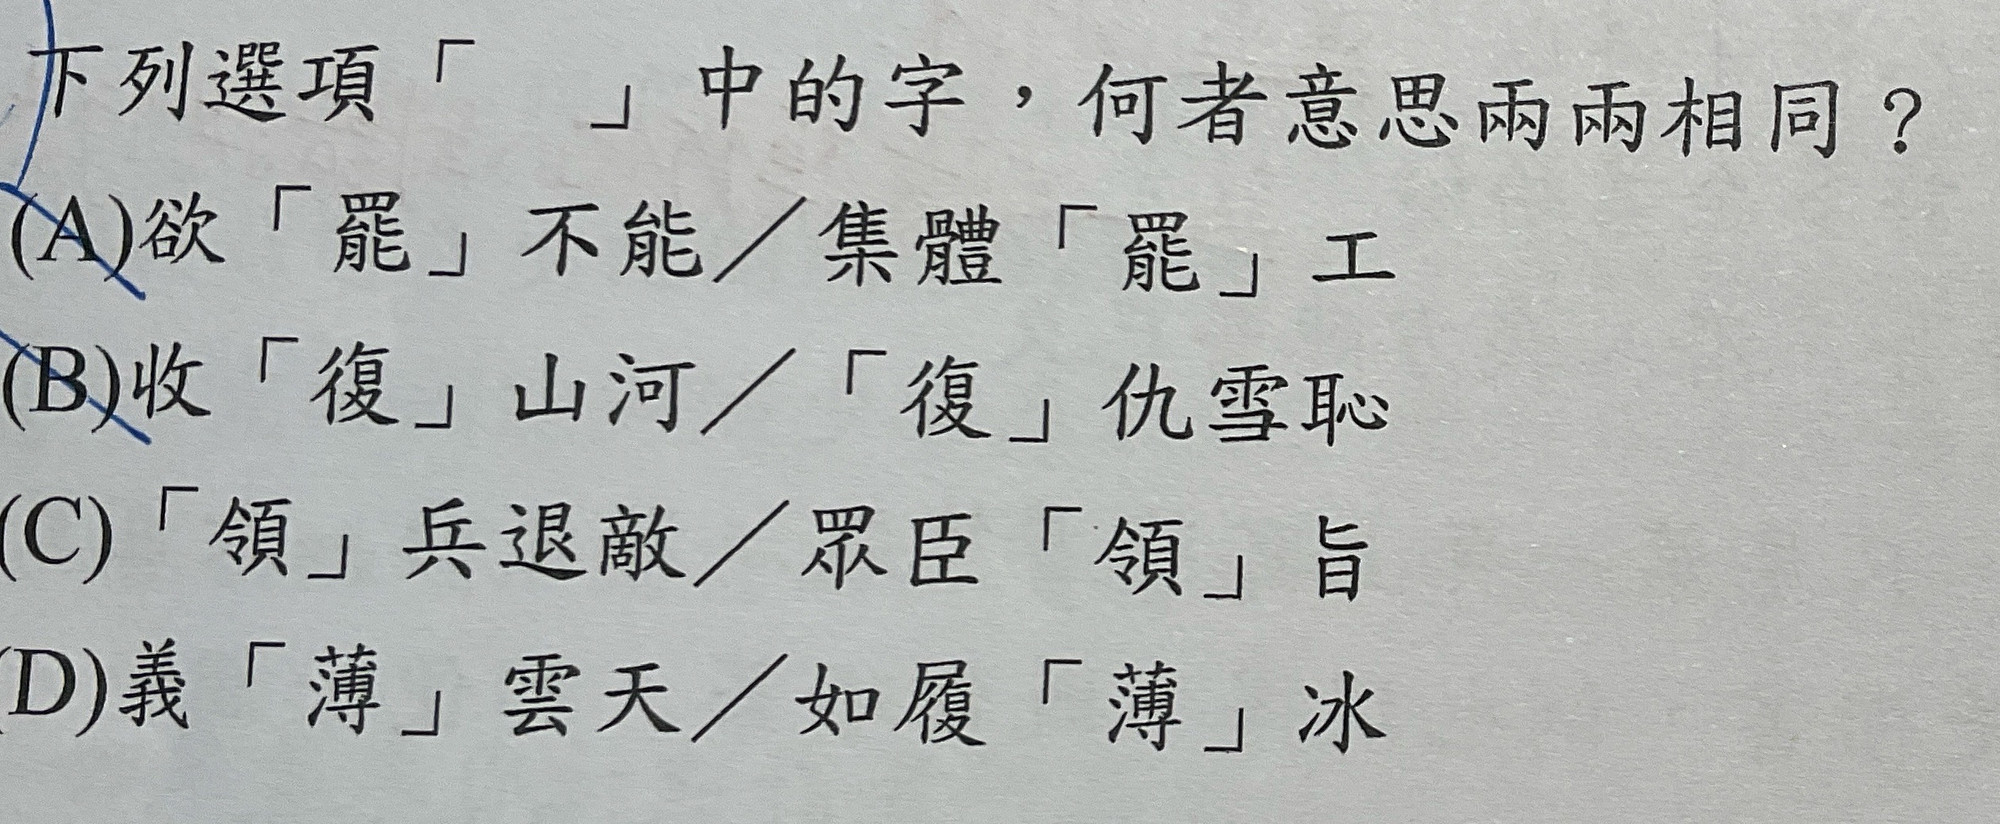 下列選項「　　」中的字，何者意思兩兩相同？
(A)欲「罷」不能／集體「罷」工
(B)收「復」山河／「復」仇雪恥
(C)「領」兵退敵／眾臣「領」旨
(D)義「薄」雲天／如履「薄」冰